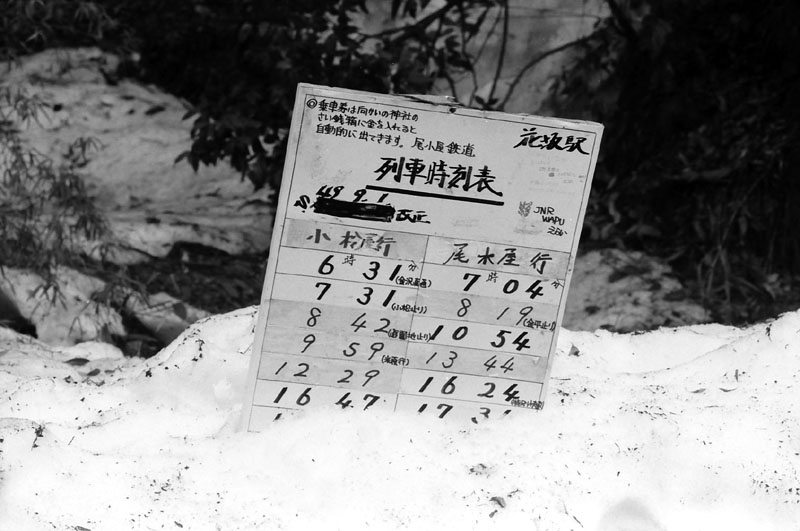 ◎乗車券は向かいの神社の
さい銭箱に金を入れると
自動的に出てきます。 尾小屋鉄道
花坂駅
列車時刻表
S.49.9.1 改正
JNR
WAPU
小松原行 尾小屋行
時 分 時 分
6 31 (金沢直通) 7 04
7 31 (小松止り) 8 19 (金平止り)
8 42 10 54
9 59 13 44
12 29 16 24
16 47 17 31